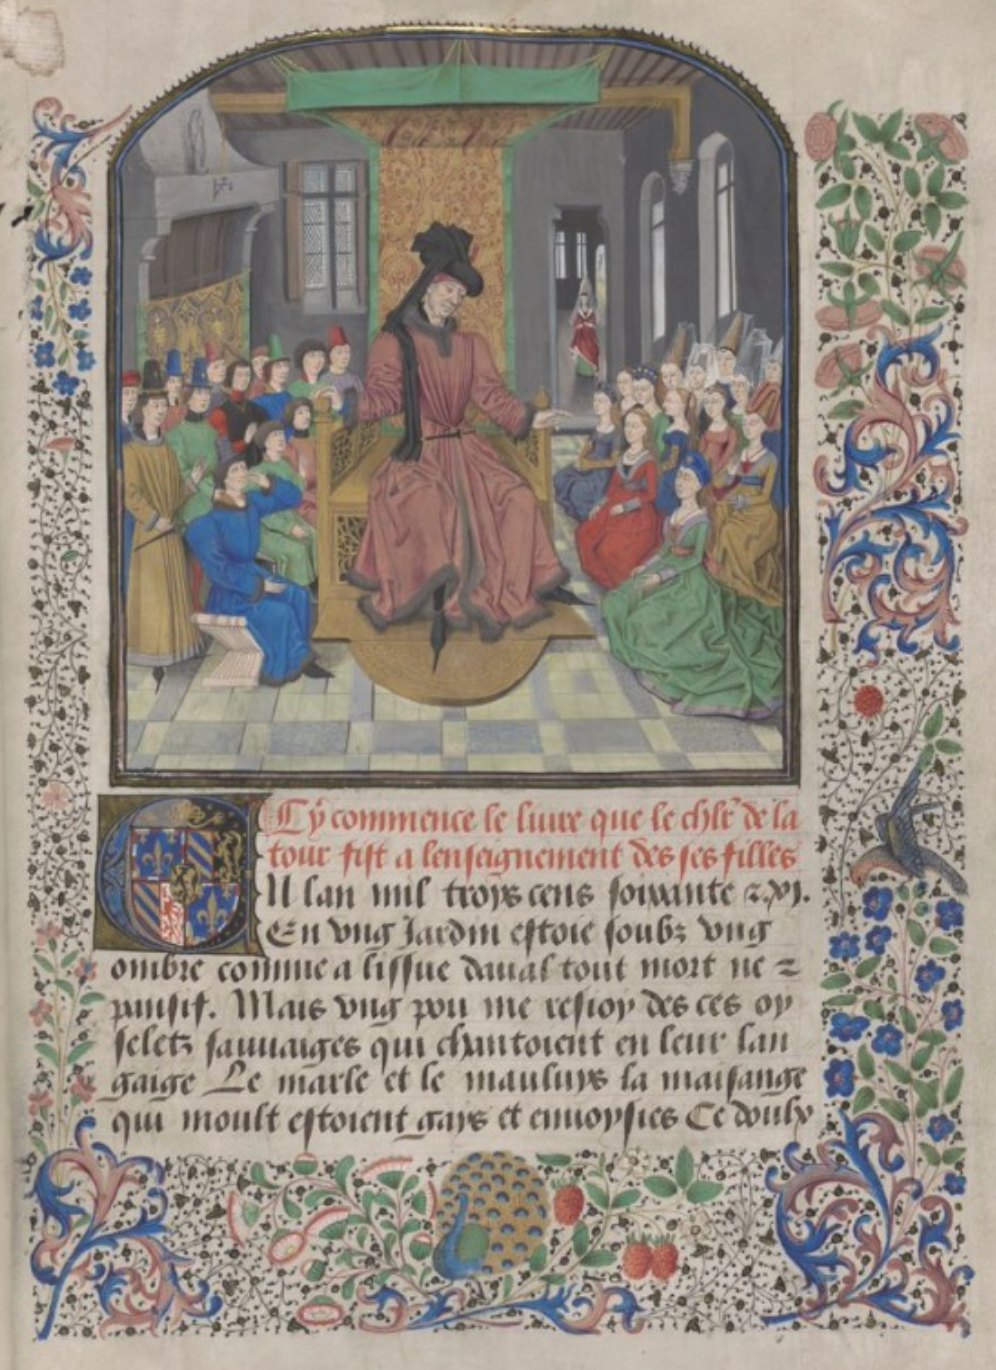 Cy commence le liure que le chlr̄ de la
tour fist a lenseignement des ses filles
El lan mil troys cens soixante ⁊ xj.
En vng Jardin estoie soubz vng
ombre comme a lissue dauril tout mort ne ⁊
pensif. Mais vng pou me resioy des ces oy
seletz sauuaiges qui chantoient en leur lan
gaige Le marle et le mauluys la maisange
qui moult estoient gays et enuoysies Ce doulx